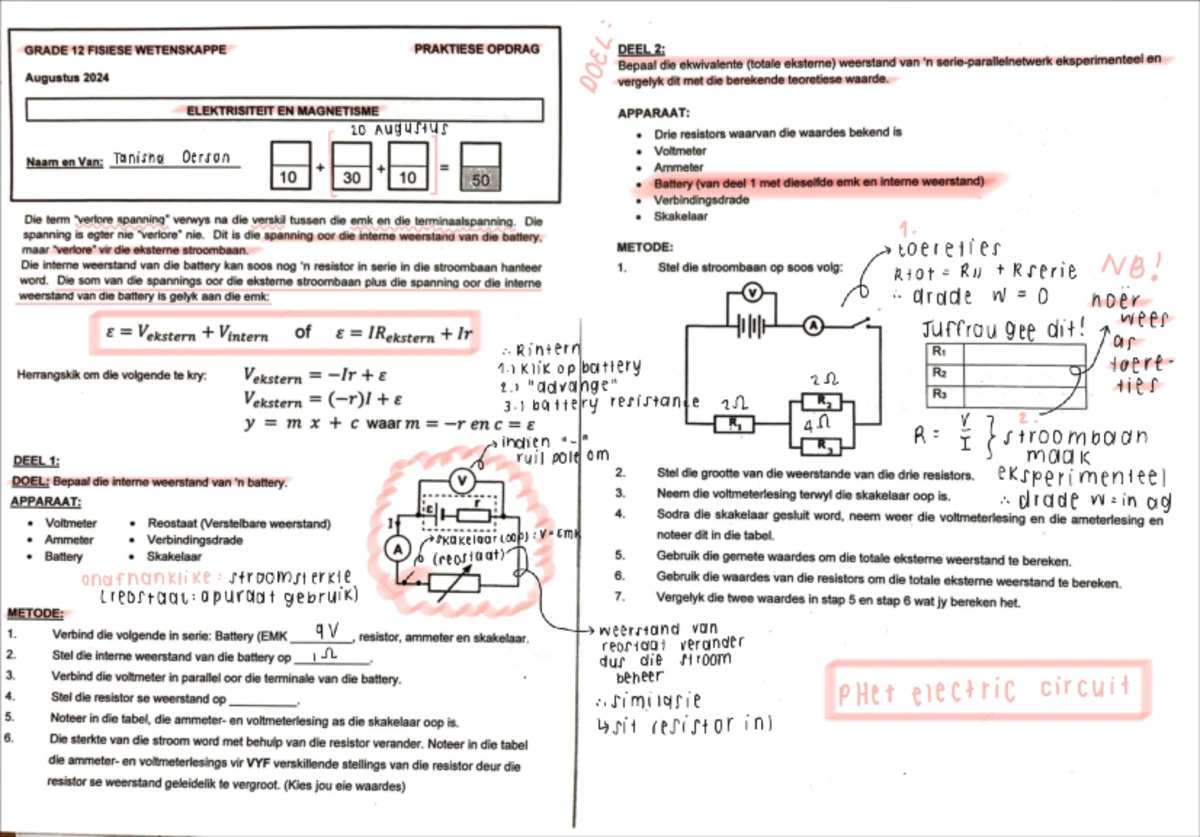 GRADE 12 FISIESE WETENSKAPPE
PRAKTIESE OPDRAG
Augustus 2024
ELEKTRISITEIT EN MAGNETISME
20 Augustus
Naam en Van: Tanisha Oerson
10 + 30 + 10 = 50
Die term "verlore spanning" verwys na die verskil tussen die emk en die terminaalspanning. Die
spanning is egter nie "verlore" nie. Dit is die spanning oor die interne weerstand van die battery,
maar "verlore" vir die eksterne stroombaan.
Die interne weerstand van die battery kan soos nog 'n resistor in serie in die stroombaan hanteer
word. Die som van die spannings oor die eksterne stroombaan plus die spanning oor die interne
weerstand van die battery is gelyk aan die emk:
ε = Vekstern + Vintern of ε = IRekstern + Ir
Herrangskik om die volgende te kry:
Vekstern = −Ir + ε
Vekstern = (−r)I + ε
y = m x + c waar m = −r en c = ε
∴ Rintern
1.) klik op battery
2.) "advange"
3.) battery resistance
indien "-"
ruil pole om
DEEL 1:
DOEL: Bepaal die interne weerstand van 'n battery.
APPARAAT:
• Voltmeter • Reostaat (Verstelbare weerstand)
• Ammeter • Verbindingsdrade
• Battery • Skakelaar
onafhanklike: stroomsterkte
(reostaat: apuraat gebruik)
V
ε r
I
A
skakelaar (oop): V=emk
(reostaat)
METODE:
1. Verbind die volgende in serie: Battery (EMK 9V, resistor, ammeter en skakelaar.
2. Stel die interne weerstand van die battery op 1Ω.
3. Verbind die voltmeter in parallel oor die terminale van die battery.
4. Stel die resistor se weerstand op ________.
5. Noteer in die tabel, die ammeter- en voltmeterlesing as die skakelaar oop is.
6. Die sterkte van die stroom word met behulp van die resistor verander. Noteer in die tabel
die ammeter- en voltmeterlesings vir VYF verskillende stellings van die resistor deur die
resistor se weerstand geleidelik te vergroot. (Kies jou eie waardes)
weerstand van
reostaat verander
dus die stroom
beheer
∴ similasie
↳ sit resistor in)
DOEL:
DEEL 2:
Bepaal die ekwivalente (totale eksterne) weerstand van 'n serie-parallelnetwerk eksperimenteel en
vergelyk dit met die berekende teoretiese waarde.
APPARAAT:
• Drie resistors waarvan die waardes bekend is
• Voltmeter
• Ammeter
• Battery (van deel 1 met dieselfde emk en interne weerstand)
• Verbindingsdrade
• Skakelaar
METODE:
1. Stel die stroombaan op soos volg:
1.
toereties
Rtot = R॥ + Rserie
∴ drade W = 0
NB!
hoër
wees
as
toere-
ties
Juffrou gee dit!
R1
R2
R3
V
A
2Ω
R1
2Ω
R2
4Ω
R3
2.
R = V/I } stroombaan
maak
eksperimenteel
∴ drade W = in ag
2. Stel die grootte van die weerstande van die drie resistors.
3. Neem die voltmeterlesing terwyl die skakelaar oop is.
4. Sodra die skakelaar gesluit word, neem weer die voltmeterlesing en die ameterlesing en
noteer dit in die tabel.
5. Gebruik die gemete waardes om die totale eksterne weerstand te bereken.
6. Gebruik die waardes van die resistors om die totale eksterne weerstand te bereken.
7. Vergelyk die twee waardes in stap 5 en stap 6 wat jy bereken het.
PHet electric circuit